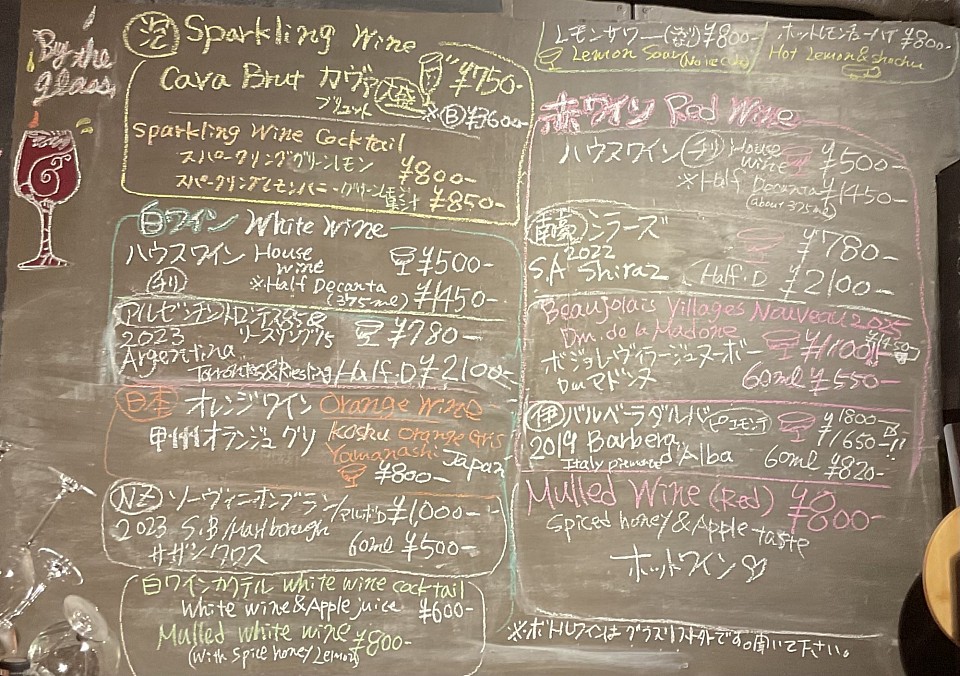 By the
glass,
泡 Sparkling Wine
Cava Brut カヴァ ¥750-
ブリュット
※Ⓑ¥3600-
Sparkling Wine Cocktail
スパークリンググリーンレモン ¥800-
スパークリングレモンハニー ¥850-
白ワイン White Wine
ハウスワイン House ¥500-
wine
チリ ※Half Decanta ¥1450-
(375ml)
アルゼンチン トロンテス85& ¥780-
2023 リースリング15
Argentina
Torontes&Riesling Half.D ¥2100-
日本 オレンジワイン Orange Wine
甲州オランジュグリ Koshu Orange Gris
Yamanashi Japan
¥800-
NZ ソーヴィニオンブラン/マルボロ ¥1,000-
2023 S.B/Marlborough
サザンクロス 60ml ¥500-
白ワインカクテル white wine cocktail
White wine&Apple juice ¥600-
Mulled white wine ¥800-
(with spice honey Lemon)
レモンサワー ¥800-
Lemon Sour (No ice OK)
ホットレモンチューハイ ¥800-
Hot Lemon&shochu
赤ワイン Red Wine
ハウスワイン チリ House ¥500-
wine
※Half Decanta ¥1450-
(about 375ml)
南豪 シラーズ ¥780-
2022
S.A Shiraz Half.D ¥2100-
Beaujolais Villages Nouveau 2025
Dm. de la Madone ¥1100 ¥1450-
ボジョレヴィラージュヌーボー
Dmマドンヌ 60ml ¥550-
伊 バルベーラダルバ ピエモンテ ¥1800-
2019 Barbera d'Alba ¥1650-
Italy piemonte 60ml ¥820-
Mulled Wine (Red) ¥800-
Spiced honey&Apple taste
ホットワイン♡
※ボトルワインはグラスリスト外です。聞いて下さい。